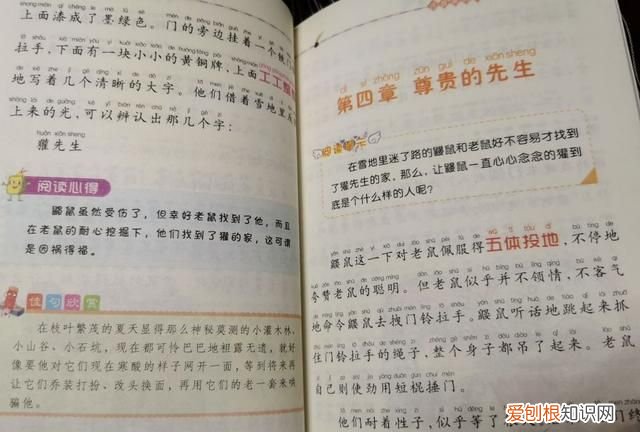 上面漆成了墨绿色。门的旁边挂着一个
拉手,下面有一块小小的黄铜牌,上面工工
地写着几个清晰的大字。他们借着雪地里
上来的光,可以辨认出那几个字:
huān xiān sheng
獾先生
阅读心得
鼹鼠虽然受伤了,但幸好老鼠找到了他,而且
在老鼠的耐心挖掘下,他们找到了獾的家,这可谓
是因祸得福。
佳句欣赏
在枝叶繁茂的夏天显得那么神秘莫测的小灌木林、
小山谷、小石坑,现在都可怜巴巴地袒露无遗,就好
像要他对它们现在寒酸的样子网开一面,等到将来再
让它们乔装打扮、改头换面,再用它们的老一套来哄
骗他。
dì sì zhāng zūn guì de xiān sheng
第四章 尊贵的先生
阅读提示
在雪地里迷了路的鼹鼠和老鼠好不容易才找到
了獾先生的家。那么,让鼹鼠一直心心念念的獾到
底是个什么样的人呢?
鼹鼠这一下对老鼠佩服得五体投地,不停地
夸赞老鼠的聪明。但老鼠似乎并不领情,不客气
地命令鼹鼠去找门铃拉手。鼹鼠听话地跳起来抓
住门铃拉手的绳子,整个身子都吊了起来。老鼠
自己则使劲用短棍捶门。
他们耐着性子,似乎等了
门终
爱刨根知识网
www.baogenzhishi.com